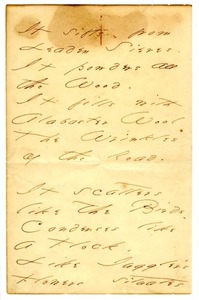 It sifts from
Leaden Sieves.
It powders all
the Wood.
It fills with
Alabaster Wool
The Wrinkles
of the Road.
It scatters
like the Birds.
Condenses like
a Flock.
Like Juggler's
Flowers Situates